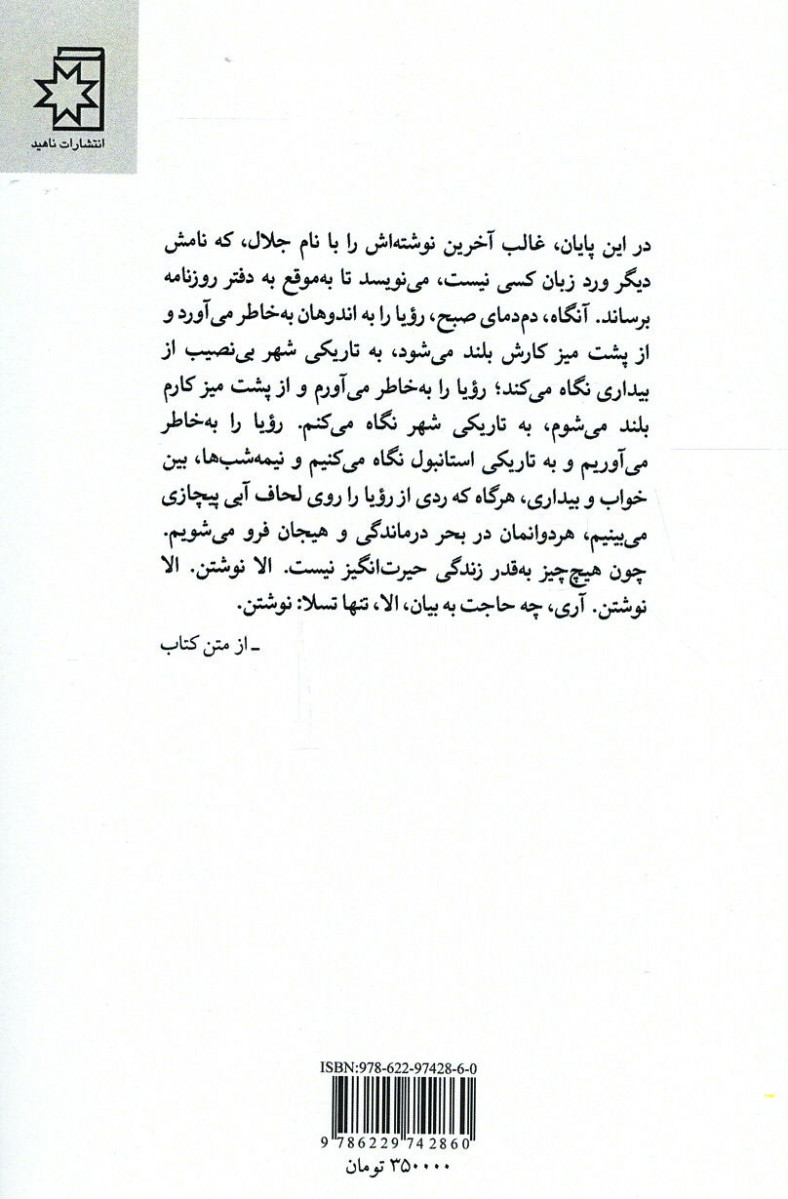 انتشارات ناهید
در این پایان، غالب آخرین نوشته‌اش را با نام جلال، که نامش
دیگر ورد زبان کسی نیست، می‌نویسد تا به‌موقع به دفتر روزنامه
برساند. آنگاه، دم‌دمای صبح، رؤیا را به اندوهان به‌خاطر می‌آورد و
از پشت میز کارش بلند می‌شود، به تاریکی شهر بی‌نصیب از
بیداری نگاه می‌کند؛ رؤیا را به‌خاطر می‌آورم و از پشت میز کارم
بلند می‌شوم، به تاریکی شهر نگاه می‌کنم. رؤیا را به‌خاطر
می‌آوریم و به تاریکی استانبول نگاه می‌کنیم و نیمه‌شب‌ها، بین
خواب و بیداری، هرگاه که ردی از رؤیا را روی لحاف آبی پیچازی
می‌بینیم، هردوانمان در بحر درماندگی و هیجان فرو می‌شویم.
چون هیچ‌چیز به‌قدر زندگی حیرت‌انگیز نیست. الا نوشتن. الا
نوشتن. آری، چه حاجت به بیان، الا، تنها تسلا: نوشتن.
ـ از متن کتاب
ISBN:978-622-97428-6-0
9 786229 742860
۳۵۰۰۰۰ تومان